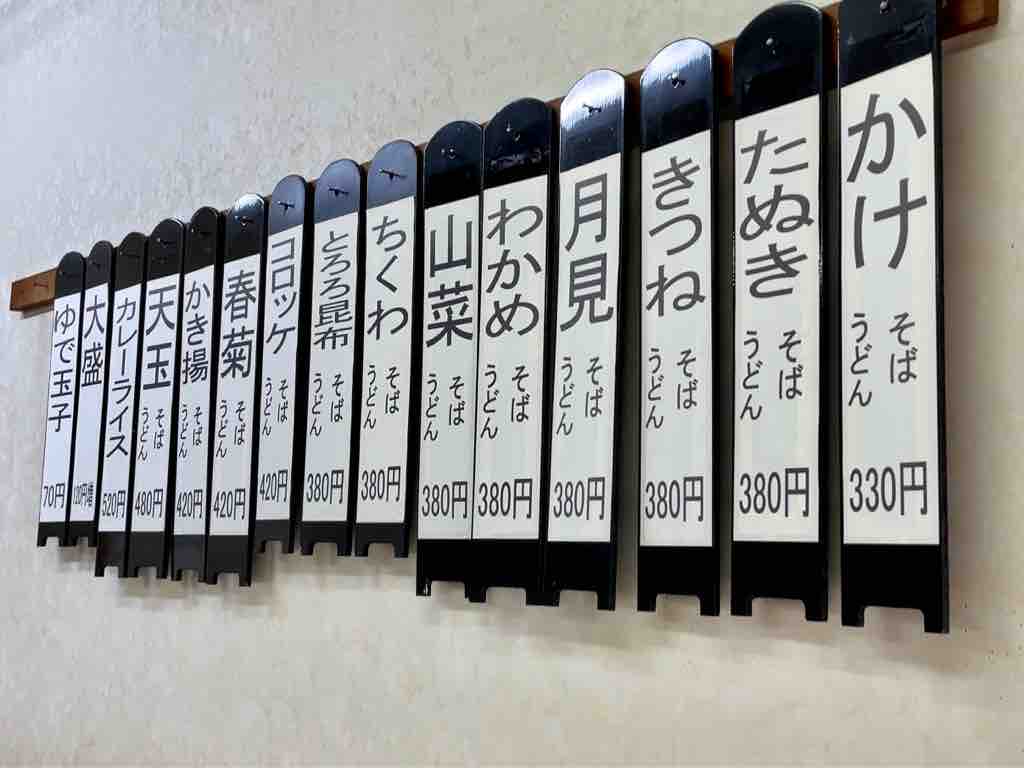 かけ
そば
うどん
330円
たぬき
そば
うどん
380円
きつね
そば
うどん
380円
月見
そば
うどん
380円
わかめ
そば
うどん
380円
山菜
そば
うどん
380円
ちくわ
そば
うどん
380円
とろろ昆布
そば
うどん
380円
コロッケ
そば
うどん
420円
春菊
そば
うどん
420円
かき揚
そば
うどん
420円
天玉
そば
うどん
480円
カレーライス
520円
大盛
ゆで玉子
70円